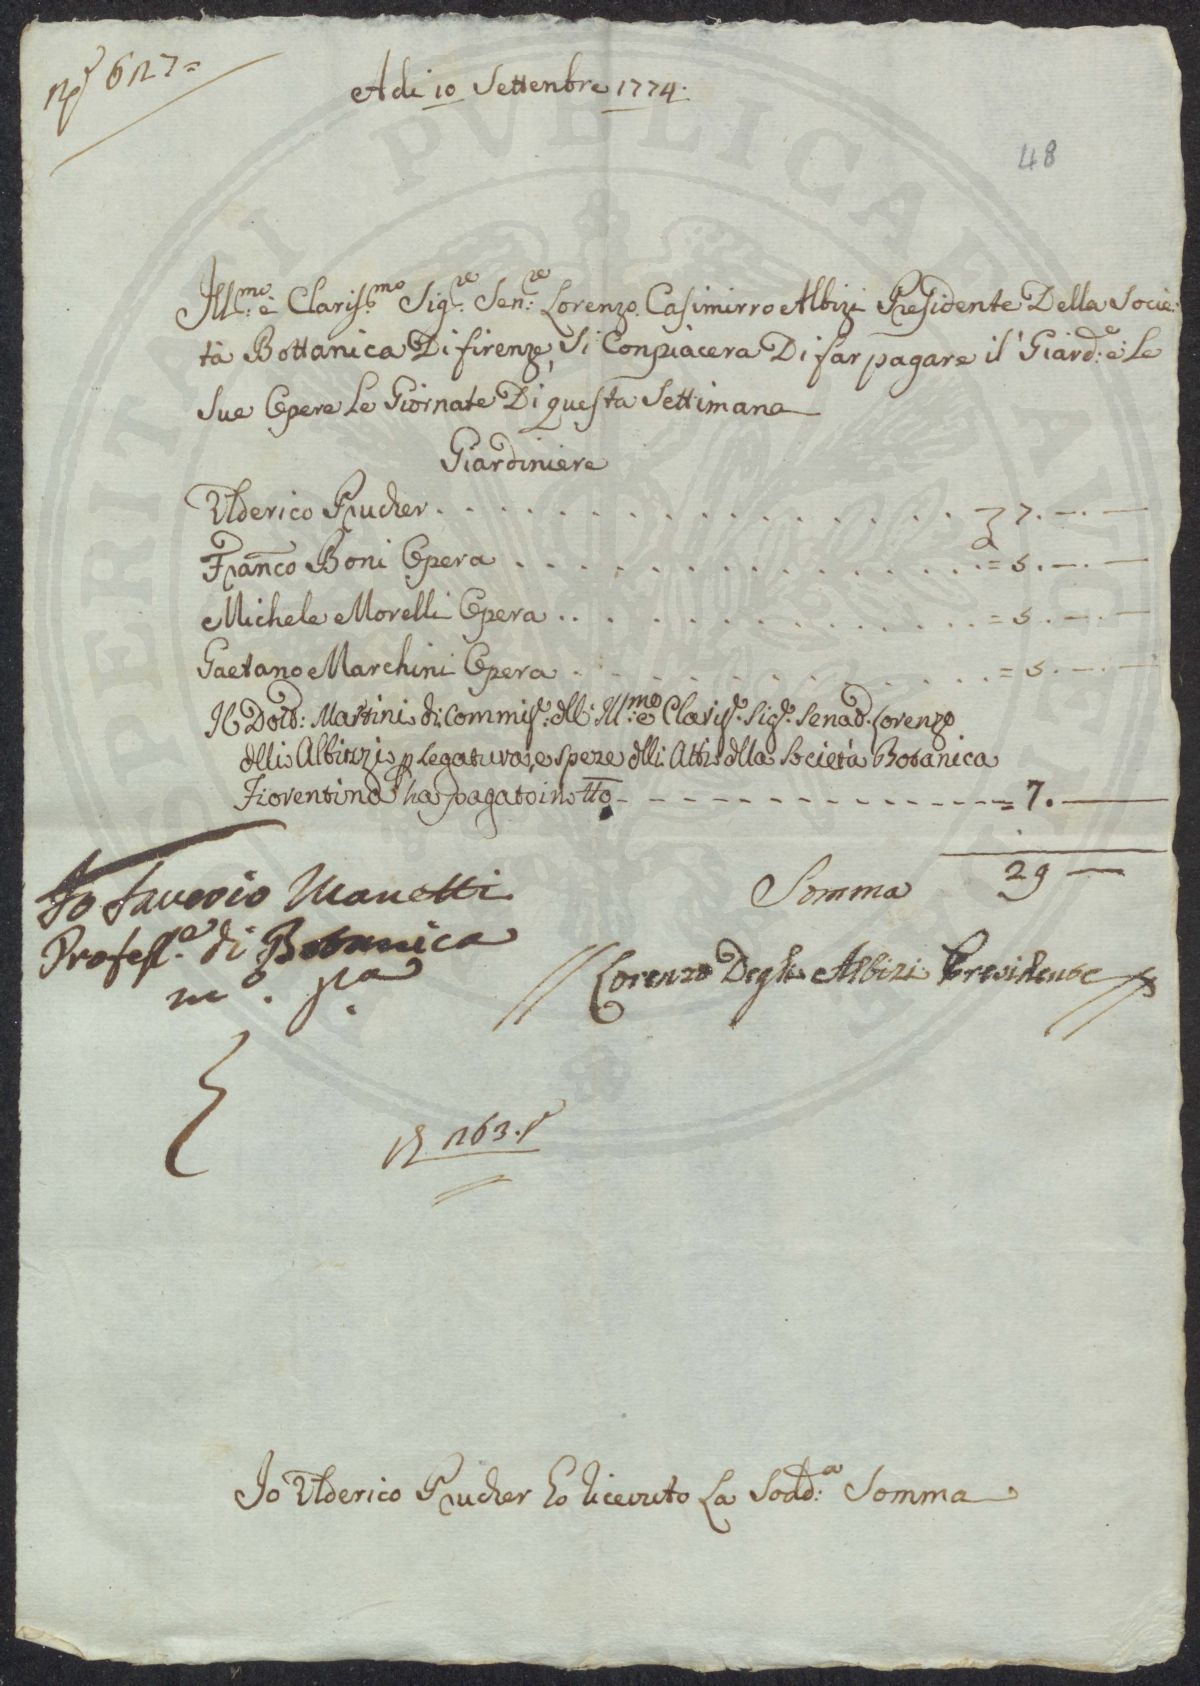 Nº 627=
A di 10 Settenbre 1774.
48
Ill:mo è Claris:mo Sig:re Sen:re Lorenzo Casimirro Albizi Presidente Della Socie:
tà Bottanica Di firenze, Si Conpiacera Di far pagare il Giard:e è Le
Sue Opere Le Giornate Di questa Settimana
Giardiniere
Ulderico Prucher 7.—.—
Franco Boni Opera = 5.—.—
Michele Morelli Opera = 5.—.—
Gaetano Marchini Opera = 5.—.—
Il Dott: Martini di Commis: dell: Ill:mo e Claris: Sig: Senad: Lorenzo
delli Albizzi p Legatura, e speze delli Atti della Società Botanica
Fiorentina ha pagato in tto = 7.—
Somma 29 —
Io Saverio Manetti
Profess.e di Botanica
mº. pa.
Lorenzo Degli Albizi Presidente
263.
Io Ulderico Prucher Ho ricevuto La Sodd:a Somma